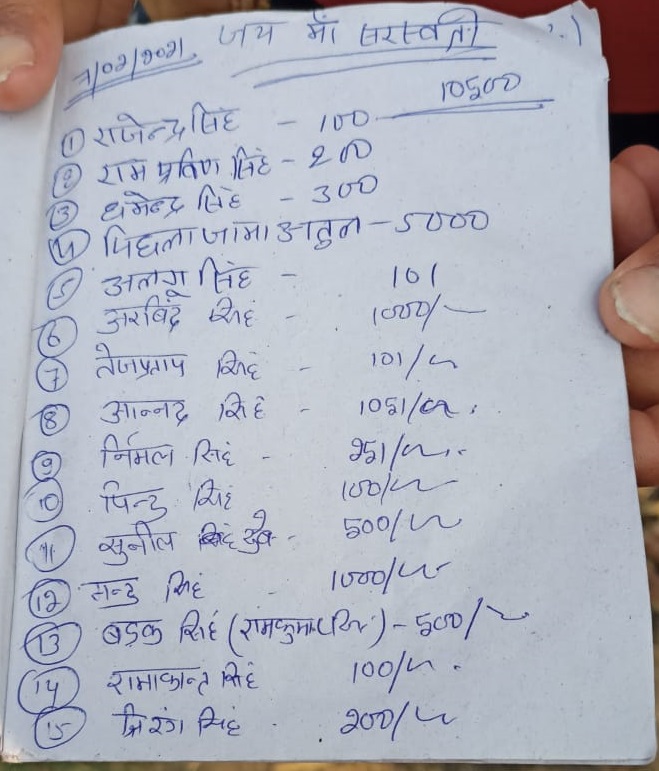 7/02/2021. जय माँ सरस्वती
10500
① राजेन्द्र सिंह - 100
② राम प्रविण सिंह - 200
③ धर्मेन्द्र सिंह - 300
④ पिछला जामा अतुल - 5000
⑤ अलगू सिंह - 101
⑥ अरबिंद सिंह - 1000/-
⑦ तेजप्रताप सिंह - 101/-
⑧ आन्नद सिंह - 1051/-
⑨ र्निमल सिंह - 251/-
⑩ पिन्टु सिंह 100/-
⑪ सुनील - 500/-
⑫ सिंह - 1000/-
⑬ बड़क सिंह (रामकुमार सिंह) - 500/-
⑭ रामाकान्त सिंह 100/-
⑮ सिंह - 200/-